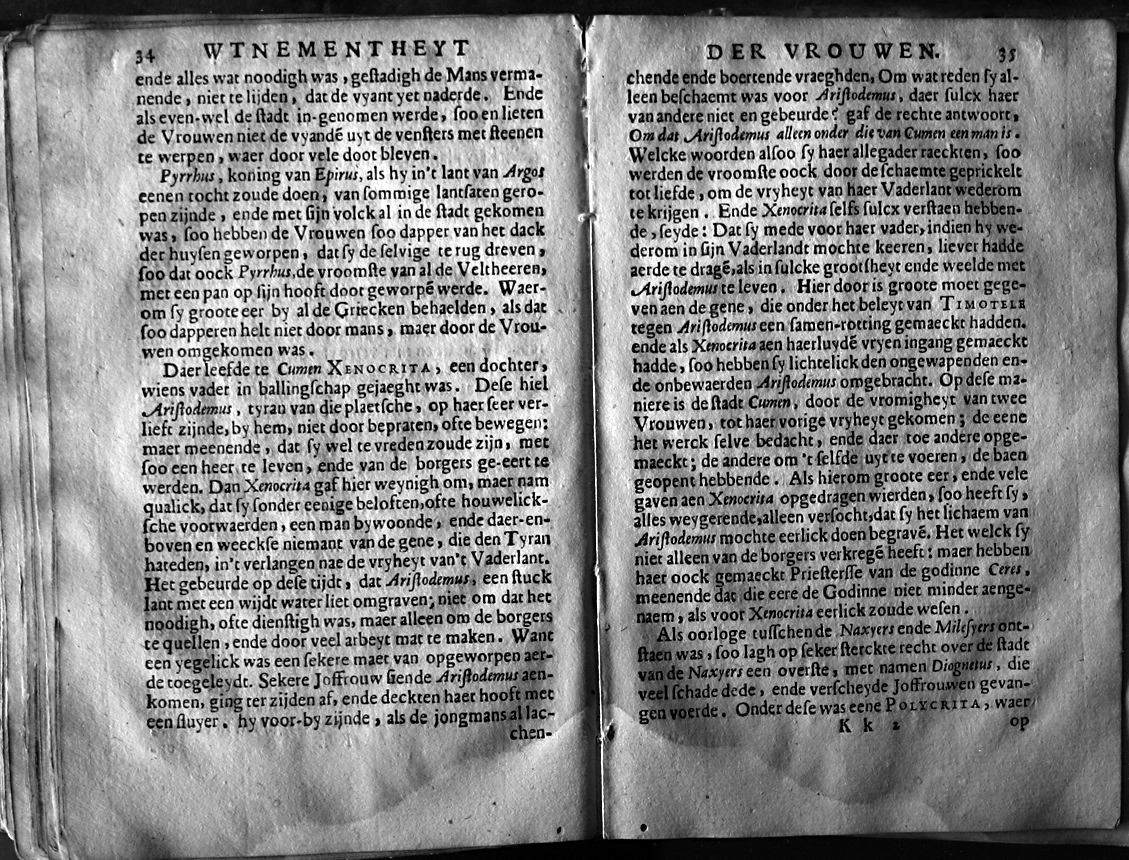 34 WTNEMENTHEYT
ende alles wat noodigh was, geſtadigh de Mans verma-
nende, niet te lijden, dat de vyant yet naderde. Ende
als even-wel de ſtadt in-genomen werde, ſoo en lieten
de Vrouwen niet de vyandē uyt de venſters met ſteenen
te werpen, waer door vele doot bleven.
Pyrrhus, koning van Epirus, als hy in't lant van Argos
eenen tocht zoude doen, van ſommige lantſaten gero-
pen zijnde, ende met ſijn volck al in de ſtadt gekomen
was, ſoo hebben de Vrouwen ſoo dapper van het dack
der huyſen geworpen, dat ſy de ſelvige te rug dreven,
ſoo dat oock Pyrrhus, de vroomſte van al de Veltheeren,
met een pan op ſijn hooft door geworpē werde. Waer-
om ſy groote eer by al de Griecken behaelden, als dat
ſoo dapperen helt niet door mans, maer door de Vrou-
wen omgekomen was.
Daer leefde te Cumen XENOCRITA, een dochter,
wiens vader in ballingſchap gejaeght was. Deſe hiel
Ariſtodemus, tyran van die plaetſche, op haer ſeer ver-
lieft zijnde, by hem, niet door bepraten, ofte bewegen:
maer meenende, dat ſy wel te vreden zoude zijn, met
ſoo een heer te leven, ende van de borgers ge-eert te
werden. Dan Xenocrita gaf hier weynigh om, maer nam
qualick, dat ſy ſonder eenige beloften, ofte houwelick-
ſche voorwaerden, een man bywoonde, ende daer-en-
boven en weeckſe niemant van de gene, die den Tyran
hateden, in't verlangen nae de vryheyt van't Vaderlant.
Het gebeurde op deſe tijdt, dat Ariſtodemus, een ſtuck
lant met een wijdt water liet omgraven; niet om dat het
noodigh, ofte dienſtigh was, maer alleen om de borgers
te quellen, ende door veel arbeyt mat te maken. Want
een yegelick was een ſekere maet van opgeworpen aer-
de toegeleydt. Sekere Joffrouw ſiende Ariſtodemus aen-
komen, ging ter zijden af, ende deckten haer hooft met
een ſluyer. hy voor-by zijnde, als de jongmans al lac-
chen-
DER VROUWEN. 35
chende ende boertende vraeghden, Om wat reden ſy al-
leen beſchaemt was voor Ariſtodemus, daer ſulcx haer
van andere niet en gebeurde? gaf de rechte antwoort,
Om dat Ariſtodemus alleen onder die van Cumen een man is.
Welcke woorden alſoo ſy haer allegader raeckten, ſoo
werden de vroomſte oock door de ſchaemte geprickelt
tot liefde, om de vryheyt van haer Vaderlant wederom
te krijgen. Ende Xenocrita ſelfs ſulcx verſtaen hebben-
de, ſeyde: Dat ſy mede voor haer vader, indien hy we-
derom in ſijn Vaderlandt mochte keeren, liever hadde
aerde te dragē, als in ſulcke grootſheyt ende weelde met
Ariſtodemus te leven. Hier door is groote moet gege-
ven aen de gene, die onder het beleyt van TIMOTELE
tegen Ariſtodemus een ſamen-rotting gemaeckt hadden.
ende als Xenocrita aen haerluydē vryen ingang gemaeckt
hadde, ſoo hebben ſy lichtelick den ongewapenden en-
de onbewaerden Ariſtodemus omgebracht. Op deſe ma-
niere is de ſtadt Cumen, door de vromigheyt van twee
Vrouwen, tot haer vorige vryheyt gekomen; de eene
het werck ſelve bedacht, ende daer toe andere opge-
maeckt; de andere om 't ſelfde uyt te voeren, de baen
geopent hebbende. Als hierom groote eer, ende vele
gaven aen Xenocrita opgedragen wierden, ſoo heeft ſy,
alles weygerende, alleen verſocht, dat ſy het lichaem van
Ariſtodemus mochte eerlick doen begravē. Het welck ſy
niet alleen van de borgers verkregē heeft: maer hebben
haer oock gemaeckt Prieſterſſe van de godinne Ceres,
meenende dat die eere de Godinne niet minder aenge-
naem, als voor Xenocrita eerlick zoude weſen.
Als oorloge tuſſchende Naxyers ende Mileſyers ont-
ſtaen was, ſoo lagh op ſeker ſterckte recht over de ſtadt
van de Naxyers een overſte, met namen Diognetus, die
veel ſchade dede, ende verſcheyde Joffrouwen gevan-
gen voerde. Onder deſe was eene POLYCRITA, waer
K k 2 op